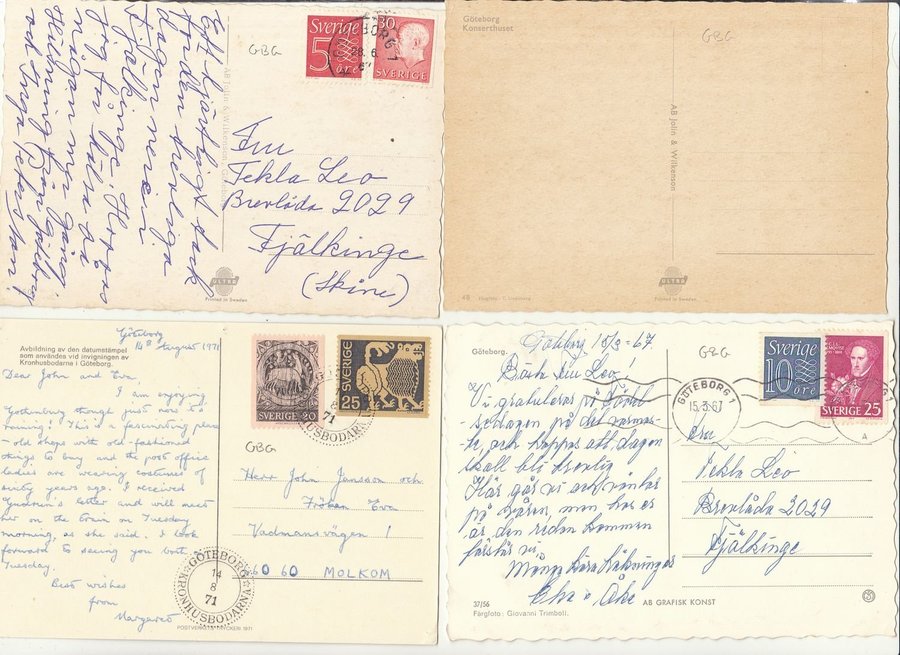 Ett hjärtligt tack
för den trevliga
dagen nere i
Fjälkinge. Hoppas
Dig för hälsa så
många många gång.
Hälsning från Göteborg
och Inga Peterston
GBG
AB Jolin & Wilkenson, Göteborg
Sverige
5
öre
30
SVERIGE
BORG 1
28.6.
67
Fru
Tekla Leo
Brevlåda 2029
Fjälkinge
(Skåne)
ULTRA
Printed in Sweden
Göteborg
Konserthuset
GBG
AB Jolin & Wilkenson
ULTRA
Printed in Sweden
48
Göteborg
14th August 1971
Avbildning av den datumstämpel
som användes vid invigningen av
Kronhusbodarna i Göteborg.
Dear John and Eva,
I am enjoying
Gothenburg though just now it's
raining! This is a fascinating place
- old shops with old-fashioned
things to buy and the post office
ladies are wearing costumes of
sixty years ago. I received
Gudrun's letter and will meet
her on the train on Tuesday
morning, as she said. I look
forward to seeing you both on
Tuesday.
Best wishes
from
Margaret
GÖTEBORG
14
8
71
KRONHUSBODARNA
POSTVERKETS TRYCKERI 1971
SVERIGE 20
SVERIGE
25
8
71
HUSBODARNA
GBG
Herr John Jansson och
Fröken Eva
Vadmansvägen 1
60 60 MOLKOM
Göteborg.
Göteborg 15/3 -67.
GBG
Bästa fru Leo!
Vi gratulerar på födel
sedagen på det varmas-
te och hoppas att dagen
skall bli trevlig
Här går vi och väntar
på våren, men hos er
är den redan kommen
förstår vi.
Många kära hälsningar
Eha o Åke
37/56
Färgfoto: Giovanni Trimboli.
AB GRAFISK KONST
GÖTEBORG 1
15.3.67
A
Sverige
10
öre
SVERIGE 25
Fru
Tekla Leo
Brevlåda 2029
Fjälkinge